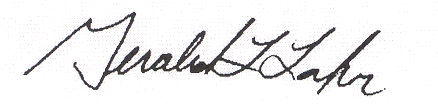 Gerald L Lahr